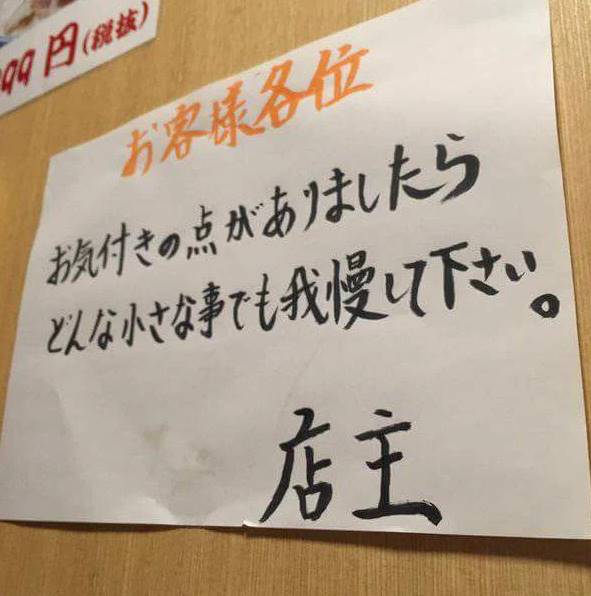 99円(税抜)
お客様各位
お気付きの点がありましたら
どんな小さな事でも我慢して下さい。
店主